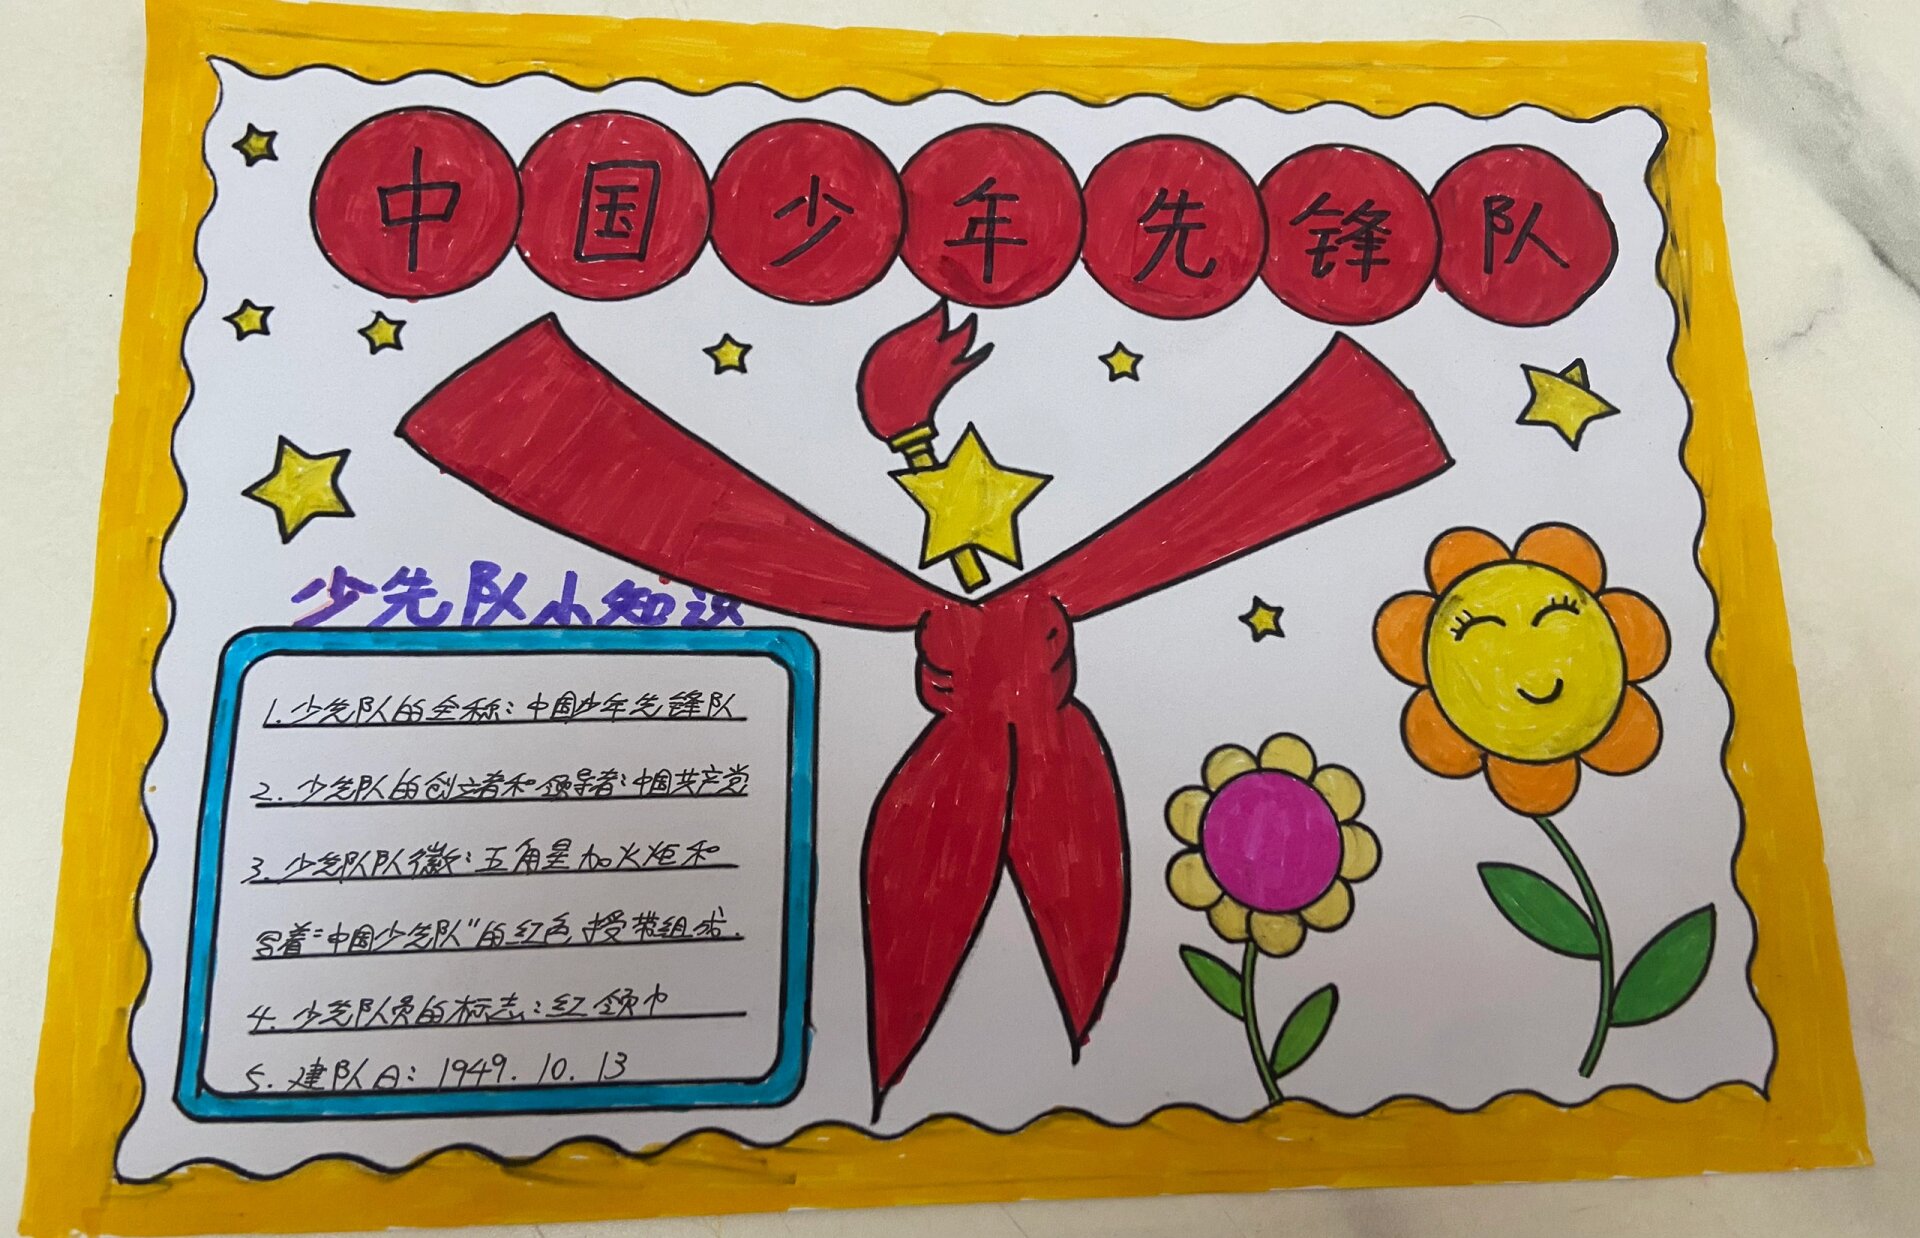 中国少年先锋队
少先队小知识
1.少先队的全称:中国少年先锋队
2.少先队的创立者和领导者:中国共产党
3.少先队队徽:五角星加火炬和
写着"中国少先队"的红色授带组成.
4.少先队员的标志:红领巾
5.建队日:1949.10.13